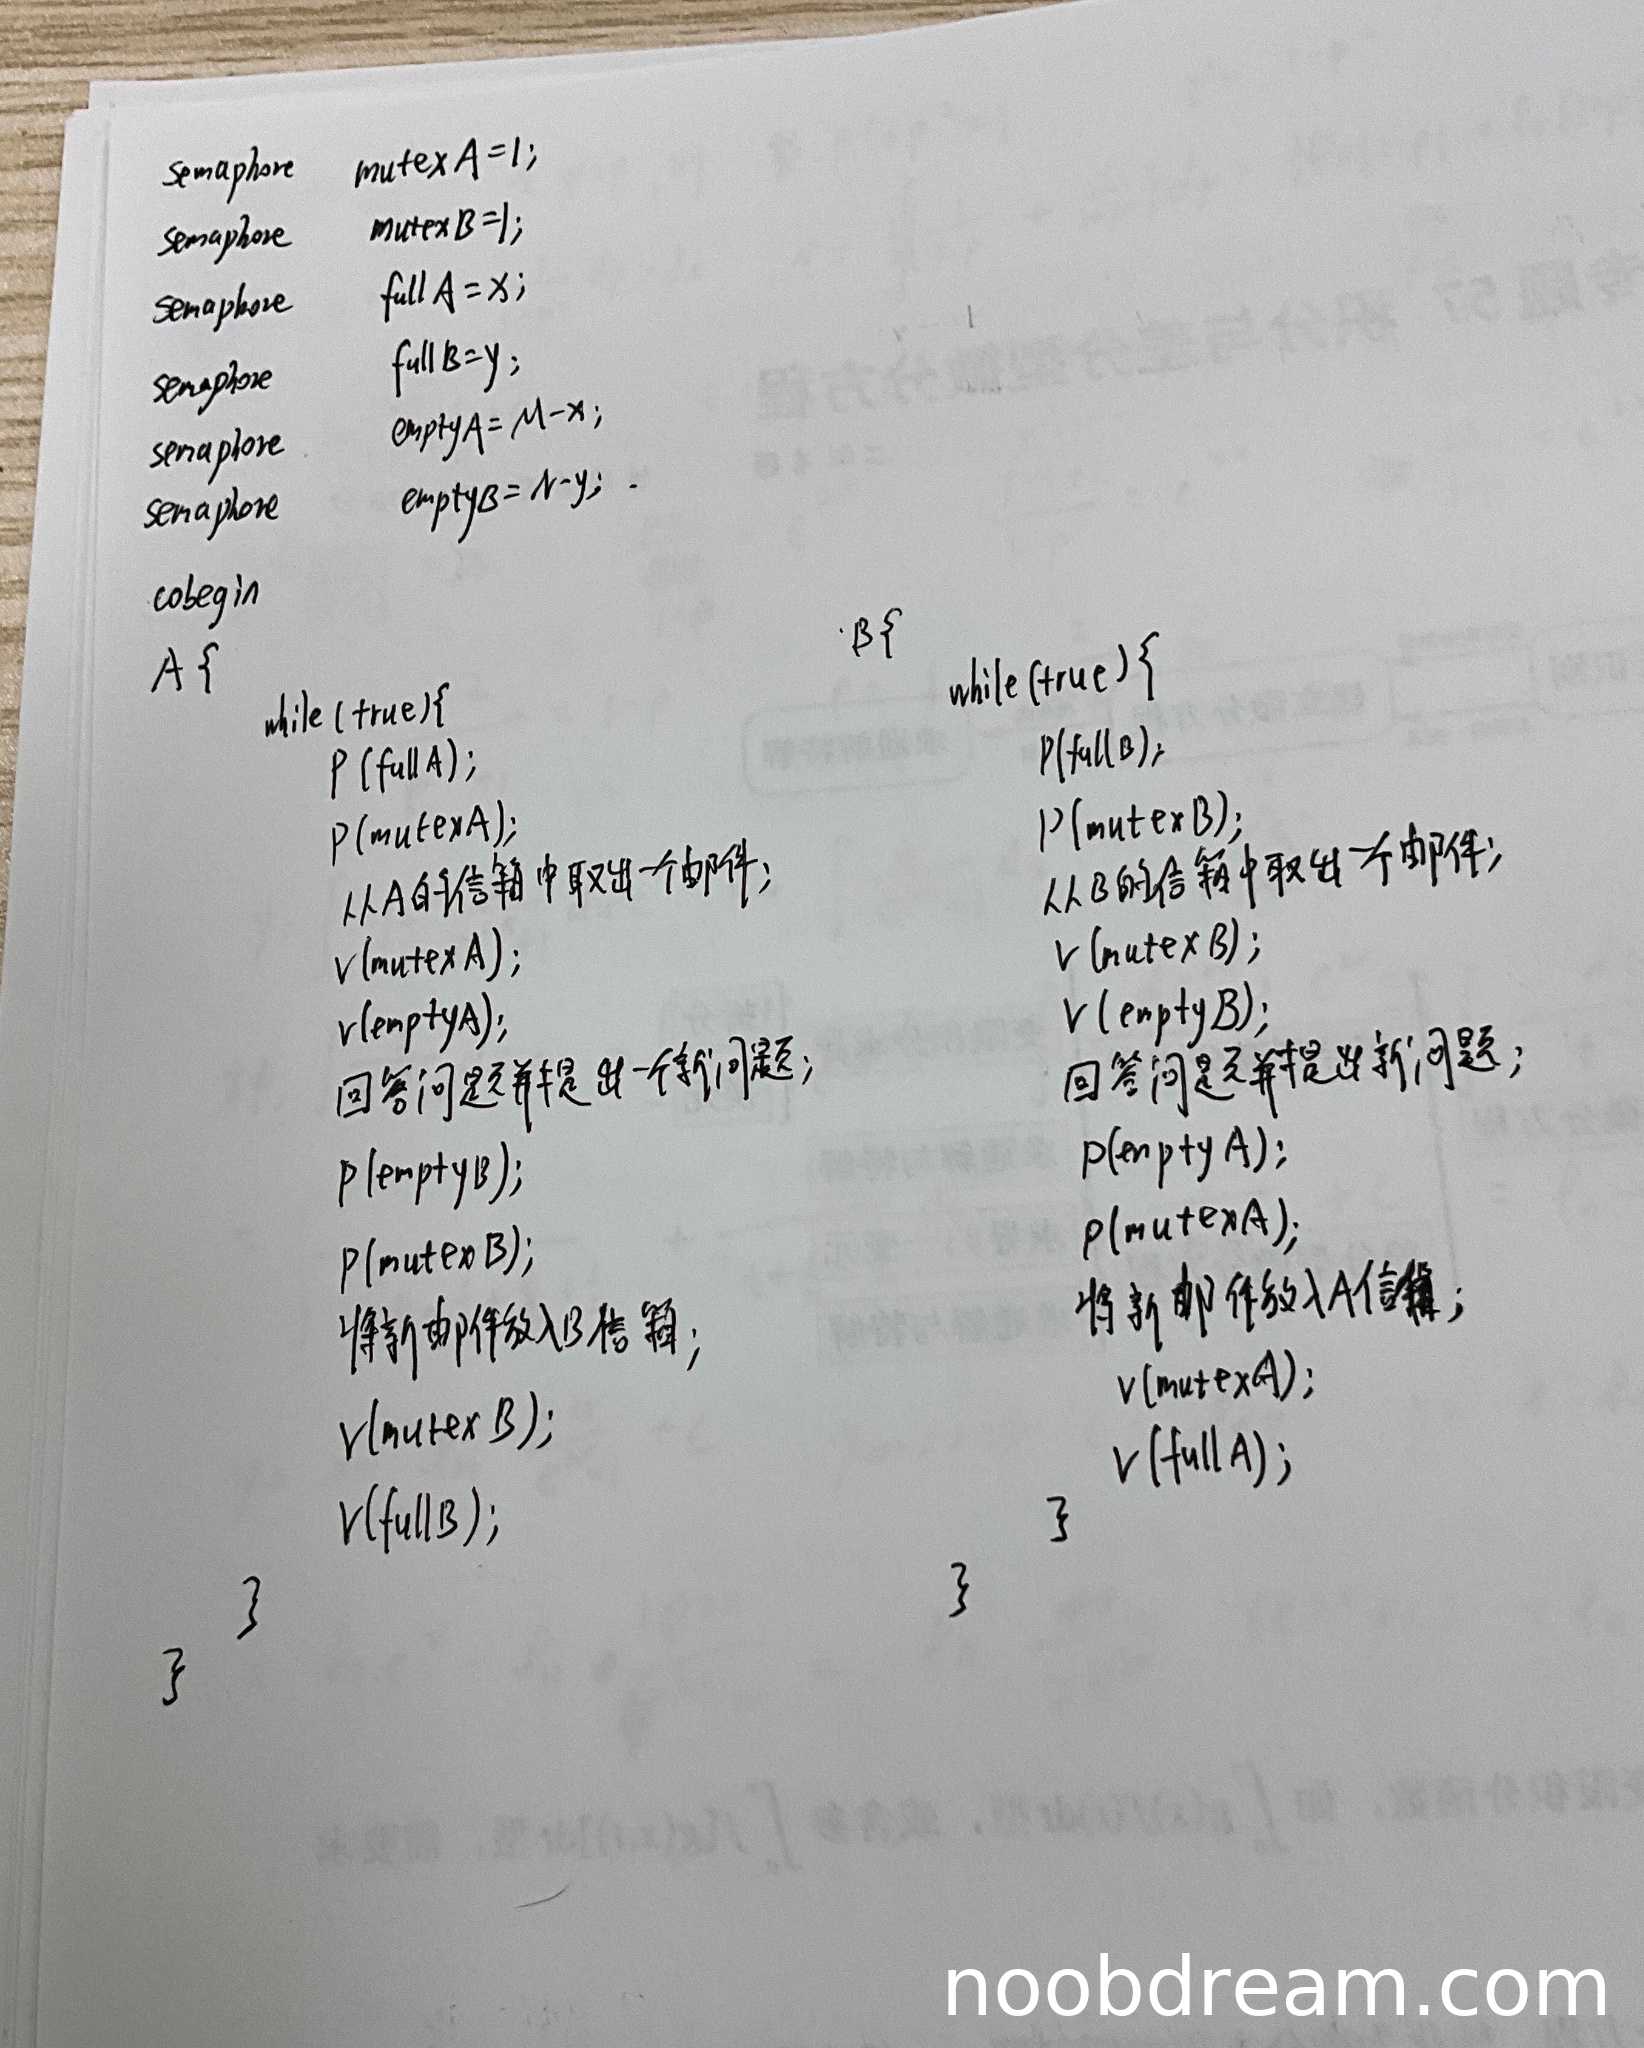 semaphore mutexA=1;
semaphore mutexB=1;
semaphore fullA=x;
semaphore fullB=y;
semaphore emptyA=M-x;
semaphore emptyB=N-y;
cobegin
A{
while(true){
P(fullA);
P(mutexA);
从A的信箱中取出一个邮件;
V(mutexA);
V(emptyA);
回答问题并提出一个新问题;
P(emptyB);
P(mutexB);
将新邮件放入B信箱;
V(mutexB);
V(fullB);
}
}
B{
while(true){
P(fullB);
P(mutexB);
从B的信箱中取出一个邮件;
V(mutexB);
V(emptyB);
回答问题并提出新问题;
P(emptyA);
P(mutexA);
将新邮件放入A信箱;
V(mutexA);
V(fullA);
}
}
noobdream.com